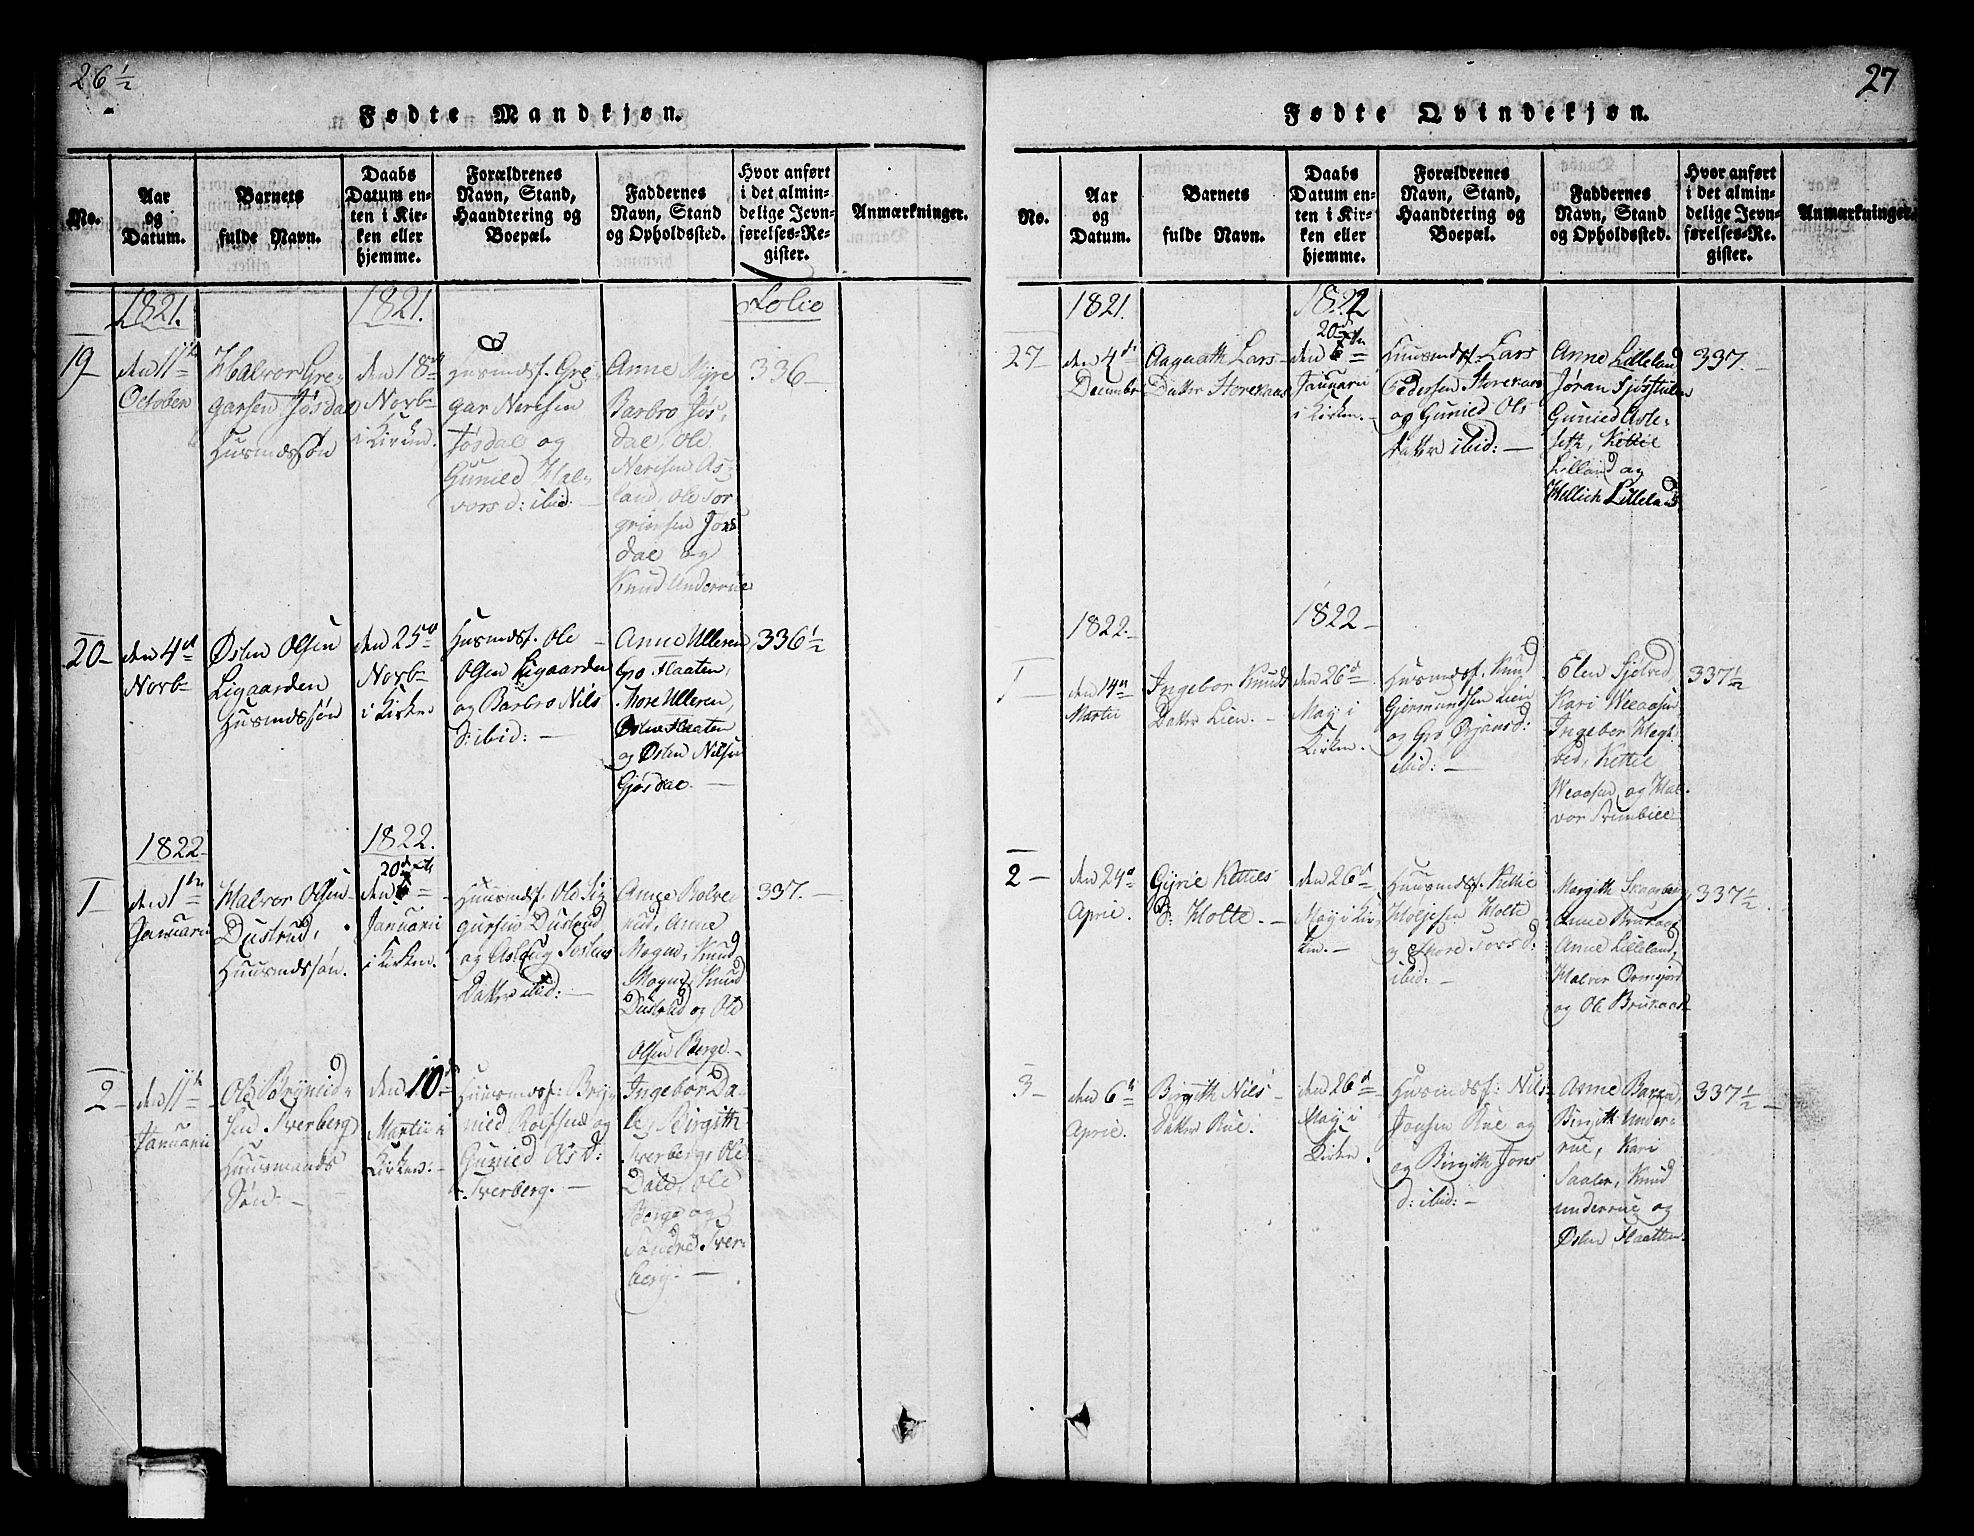 26 1/2
Fødte Mandkjøn.
No.
Aar
og
Datum.
Barnets
fulde Navn.
Daabs
Datum en-
ten i Kir-
ken eller
hjemme.
Forældrenes
Navn, Stand,
Haandtering og
Boepæl.
Faddernes
Navn, Stand
og Opholdssted.
Hvor anført
i det almin-
delige Jevn-
førelses-Re-
gister.
Anmærkninger.
1821.
1821.
Folio
19
den 11te
October
Halvor Gre-
garsen Jøsdal
Husmdssøn
den 18de
Novb
i Kirken.
Husmdsf. Gre
gar Nerisen
Jøsdal og
Gunild Hal-
vors d: ibid:
Anne Myre
Barbro Jøs-
dal, Ole
Nerisen As-
land, Ole Tor
grimsen Jøns
dal og
Knud Underrue
336
20
den 4de
Novb
Østen Olsen
Ligaarden
Husmdssøn
den 25de
Novb
i Kirken
Husmdsf. Ole
Olsen Ligaarden
og Barbro Nils
d: ibid:
Anne Ulleren
Gro Flaaten,
Thore Ulleren,
Østen Flaaten
og Østen Nilsen
Gjøsdal.
336 1/2
1822
1822.
1
den 1te
Januarii
Halvor Olsen
Dustrud,
Huusmdssøn.
20de
den 6
Januarii
i Kirken.
Huusmdsf. Ole Si
gursen Dustrud
og Aslaug Tostens
Datter ibid:
Anne Bolve
rud, Anne
Mogen, Knud
Mogen, Knud
Dustrud og Ole
Olsen Berge.
337.
2
den 11te
Januarii
Ole Brynild-
sen Tverberg
Huusmands
Søn
den 10de
Martii i
Kirken.
Huusmdsf: Bry-
nild Rolfsen og
Gunild Ols d:
Tverberg.
Ingebor Da-
le, Birgith
Tverberg, Ole
Dale, Ole
Berge og
Søndre Tver-
berg.
27
Fødte Qvindekjøn.
No.
Aar
og
Datum.
Barnets
fulde Navn.
Daabs
Datum en-
ten i Kir-
ken eller
hjemme.
Forældrenes
Navn, Stand,
Haandtering og
Boepæl.
Faddernes
Navn, Stand
og Opholdssted.
Hvor anført
i det almin-
delige Jevn-
førelses-Re-
gister.
Anmærkninger.
1821.
1822
27
den 4de
December
Aagaath Lars
Datter Storekaas
20de
den 6
Januarii
i Kirken.
Huusmdsf. Lars
Pedersen Storekaas
og Gunild Ols
datter ibid:
Anne Lilleland
Jøran Sjøstulen
Gunild Asle-
seth, Kittil
Lilland og
Kellich Lilleland
337.
1822.
1822
1
den 14de
Martii
Ingebor Knuds
Datter Lien.
den 26de
May i
Kirken.
Husmdsf. Knud
Gjermundsen Lien
og Gro Ørjans d:
ibid:
Elen Sjølved
Kari Weaasen
Ingebor Hegt
ved, Kittil
Weaasen, og Hal-
vor Trinbiel
337 1/2
2
den 24de
April.
Gyrie Kittils
D: Holte.
den 26de
May i Kir-
ken.
Huusmdsf. Kittil
Høljesen Holte
og Thore Tors d:
ibid.
Margith Skogeberg
Anne Brukaas
Anne Lilleland,
Halvor Ormsjord
og Ole Brukaas
337 1/2
3
den 6te
April.
Birgith Nils
Datter Rue.
den 26de
May i
Kirken.
Husmdsf: Nils
Jonsen Rue og
og Birgith Jons
d: ibid:
Anne Barra
Birgith Under-
rue, Kari
Saalen, Knud
underrue og
Østen Flaatten.
337 1/2